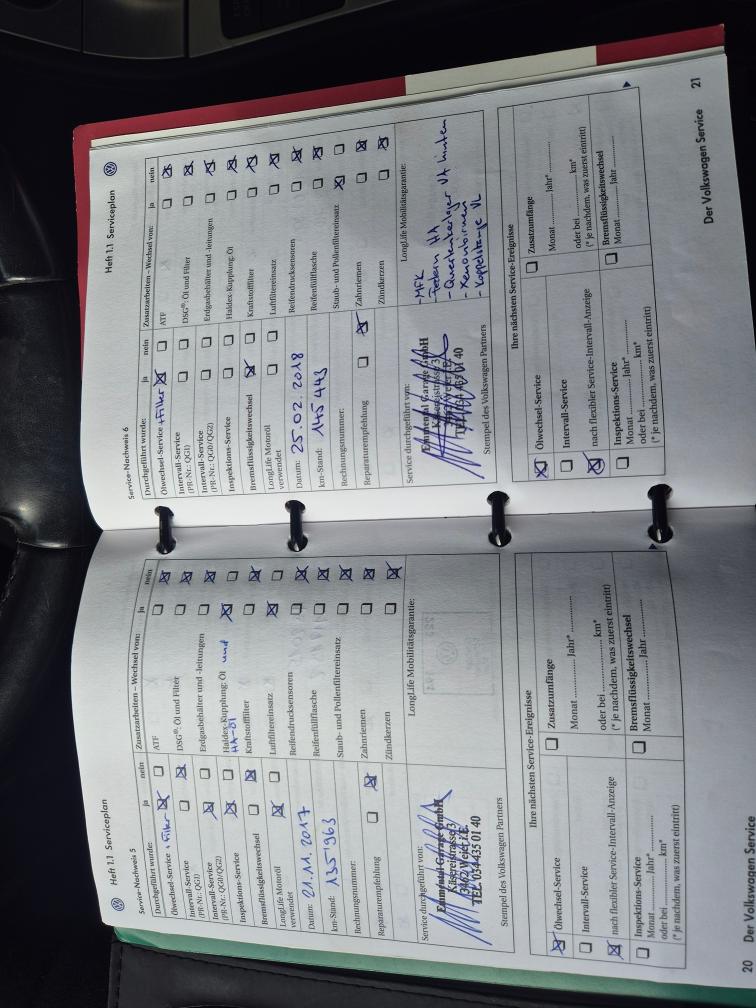 Heft 1.1 Serviceplan
Service-Nachweis 5
Durchgeführt wurde: ja nein
Ölwechsel-Service + Filter
Intervall-Service
(PR-Nr.: QG1)
Intervall-Service
(PR-Nr.: QG0/QG2)
Inspektions-Service
Bremsflüssigkeitswechsel
LongLife Motoröl
verwendet
Datum: 21.11.2017
km-Stand: 135'963
Rechnungsnummer:
Reparaturempfehlung
Zusatzarbeiten – Wechsel von: ja nein
ATF
DSG®: Öl und Filter
Erdgasbehälter und -leitungen
Haldex-Kupplung: Öl und
HA-Öl
Kraftstofffilter
Luftfiltereinsatz
Reifendrucksensoren
Reifenfüllflasche
Staub- und Pollenfiltereinsatz
Zahnriemen
Zündkerzen
Service durchgeführt von:
Emmental Garage GmbH
Käsereistrasse 3
TEL. 034 435 01 40
Stempel des Volkswagen Partners
LongLife Mobilitätsgarantie:
Ihre nächsten Service-Ereignisse
Ölwechsel-Service
Intervall-Service
nach flexibler Service-Intervall-Anzeige
Inspektions-Service
Monat ............. Jahr* .............
oder bei ............. km*
(* je nachdem, was zuerst eintritt)
Zusatzumfänge
Monat ............. Jahr* .............
oder bei ............. km*
(* je nachdem, was zuerst eintritt)
Bremsflüssigkeitswechsel
Monat ............. Jahr .............
20 Der Volkswagen Service
Heft 1.1 Serviceplan
Service-Nachweis 6
Durchgeführt wurde: ja nein
Ölwechsel-Service + Filter
Intervall-Service
(PR-Nr.: QG1)
Intervall-Service
(PR-Nr.: QG0/QG2)
Inspektions-Service
Bremsflüssigkeitswechsel
LongLife Motoröl
verwendet
Datum: 25.02.2018
km-Stand: 145'443
Rechnungsnummer:
Reparaturempfehlung
Zusatzarbeiten – Wechsel von: ja nein
ATF
DSG®: Öl und Filter
Erdgasbehälter und -leitungen
Haldex-Kupplung: Öl
Kraftstofffilter
Luftfiltereinsatz
Reifendrucksensoren
Reifenfüllflasche
Staub- und Pollenfiltereinsatz
Zahnriemen
Zündkerzen
Service durchgeführt von:
Emmental Garage GmbH
Käsereistrasse 3
TEL. 034 435 01 40
Stempel des Volkswagen Partners
LongLife Mobilitätsgarantie:
- MFK
- Federn HA
- Querlenkerlager VA hinten
- Xenonbirnen
- Koppelstange VL
Ihre nächsten Service-Ereignisse
Ölwechsel-Service
Intervall-Service
nach flexibler Service-Intervall-Anzeige
Inspektions-Service
Monat ............. Jahr* .............
oder bei ............. km*
(* je nachdem, was zuerst eintritt)
Zusatzumfänge
Monat ............. Jahr* .............
oder bei ............. km*
(* je nachdem, was zuerst eintritt)
Bremsflüssigkeitswechsel
Monat ............. Jahr .............
Der Volkswagen Service 21